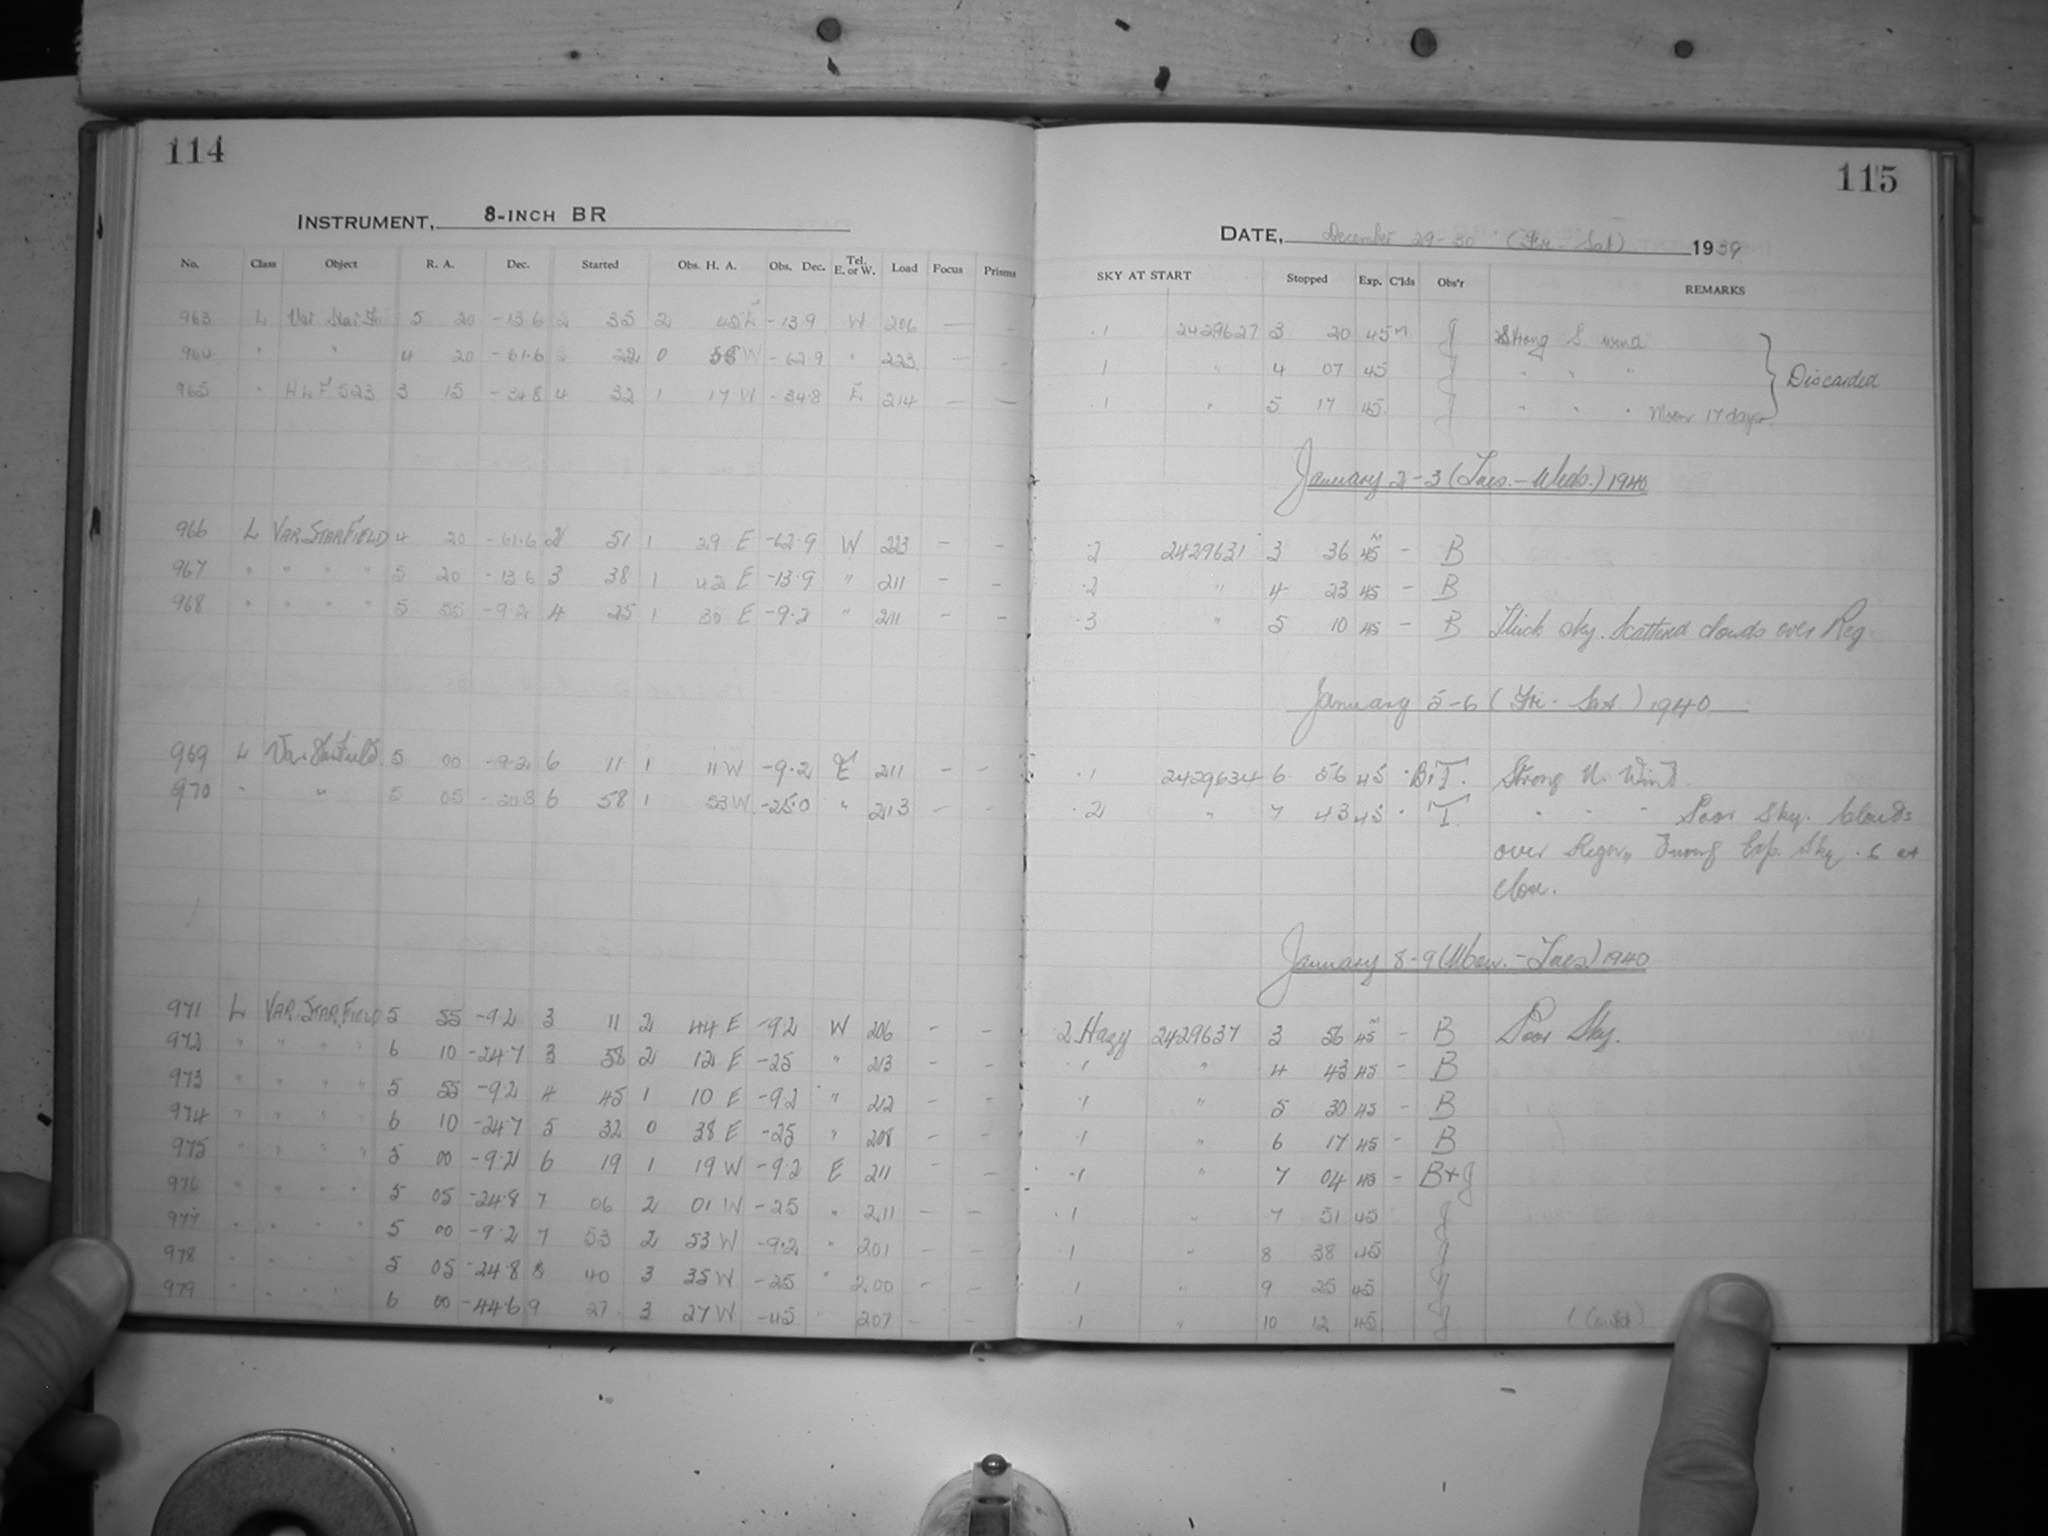 114
INSTRUMENT, 8-INCH BR
No. Class Object R. A. Dec. Started Obs. H. A. Obs. Dec. Tel. E. or W. Load Focus Prisms
963 L Var Star F. 5 20 -13.6 2 35 2 45 E -13.9 W 206 — —
964 " " 4 20 -61.6 22 0 W -62.9 " 223 — —
965 " H L F 523 3 15 -34.8 4 32 1 17 W -34.8 E 214 — —
966 L VAR. STAR FIELD 4 20 -61.6 2 51 1 29 E -62.9 W 223 — —
967 " " " " 5 20 -13.6 3 38 1 42 E -13.9 " 211 — —
968 " " " " 5 55 -9.2 4 25 1 30 E -9.2 " 211 — —
969 L Var. Star Field 5 00 -9.2 6 11 1 11 W -9.2 E 211 — —
970 " " 5 05 6 58 1 53 W -25.0 " 213 — —
971 L VAR. STAR. FIELD 5 55 -9.2 3 11 2 44 E -9.2 W 206 — —
972 " " " " 6 10 -24.7 3 58 2 12 E -25 " 213 — —
973 " " " " 5 55 -9.2 4 45 1 10 E -9.2 " 212 — —
974 " " " " 6 10 -24.7 5 32 0 38 E -25 " 208 — —
975 " " " " 5 00 -9.2 6 19 1 19 W -9.2 E 211 — —
976 " " " " 5 05 -24.8 7 06 2 01 W -25 " 211 — —
977 " " " " 5 00 -9.2 7 53 2 53 W -9.2 " 201 — —
978 " " " " 5 05 -24.8 8 40 3 35 W -25 " 200 — —
979 " " " " 6 00 -44.6 9 27 3 27 W -45 " 207 — —
115
DATE, December 29-30 (Fri - Sat) 1939
SKY AT START Stopped Exp. C'lds Obs'r REMARKS
.1 2429627 3 20 45m J Strong S. wind
.1 " 4 07 45 J " " " Discarded
.1 " 5 17 45 J " " " Moon 17 days
January 2-3 (Tues. - Weds.) 1940
.2 2429631 3 36 45m - B
.2 " 4 23 45 - B
.3 " 5 10 45 - B Thick sky. Scattered clouds over Reg.
January 5-6 (Fri - Sat) 1940
.1 2429634 6 56 45 B+T. Strong N. Wind.
.2 " 7 43 45 T " " " Poor Sky. Clouds
over Region During Exp. Sky .6 at
close.
January 8-9 (Mon. - Tues.) 1940
.2 Hazy 2429637 3 56 45m - B Poor Sky.
.1 " 4 43 45 - B
.1 " 5 30 45 - B
.1 " 6 17 45 - B
.1 " 7 04 45 - B+J
.1 " 7 51 45 J
.1 " 8 38 45 J
.1 " 9 25 45 J
.1 " 10 12 45 J (Contd)